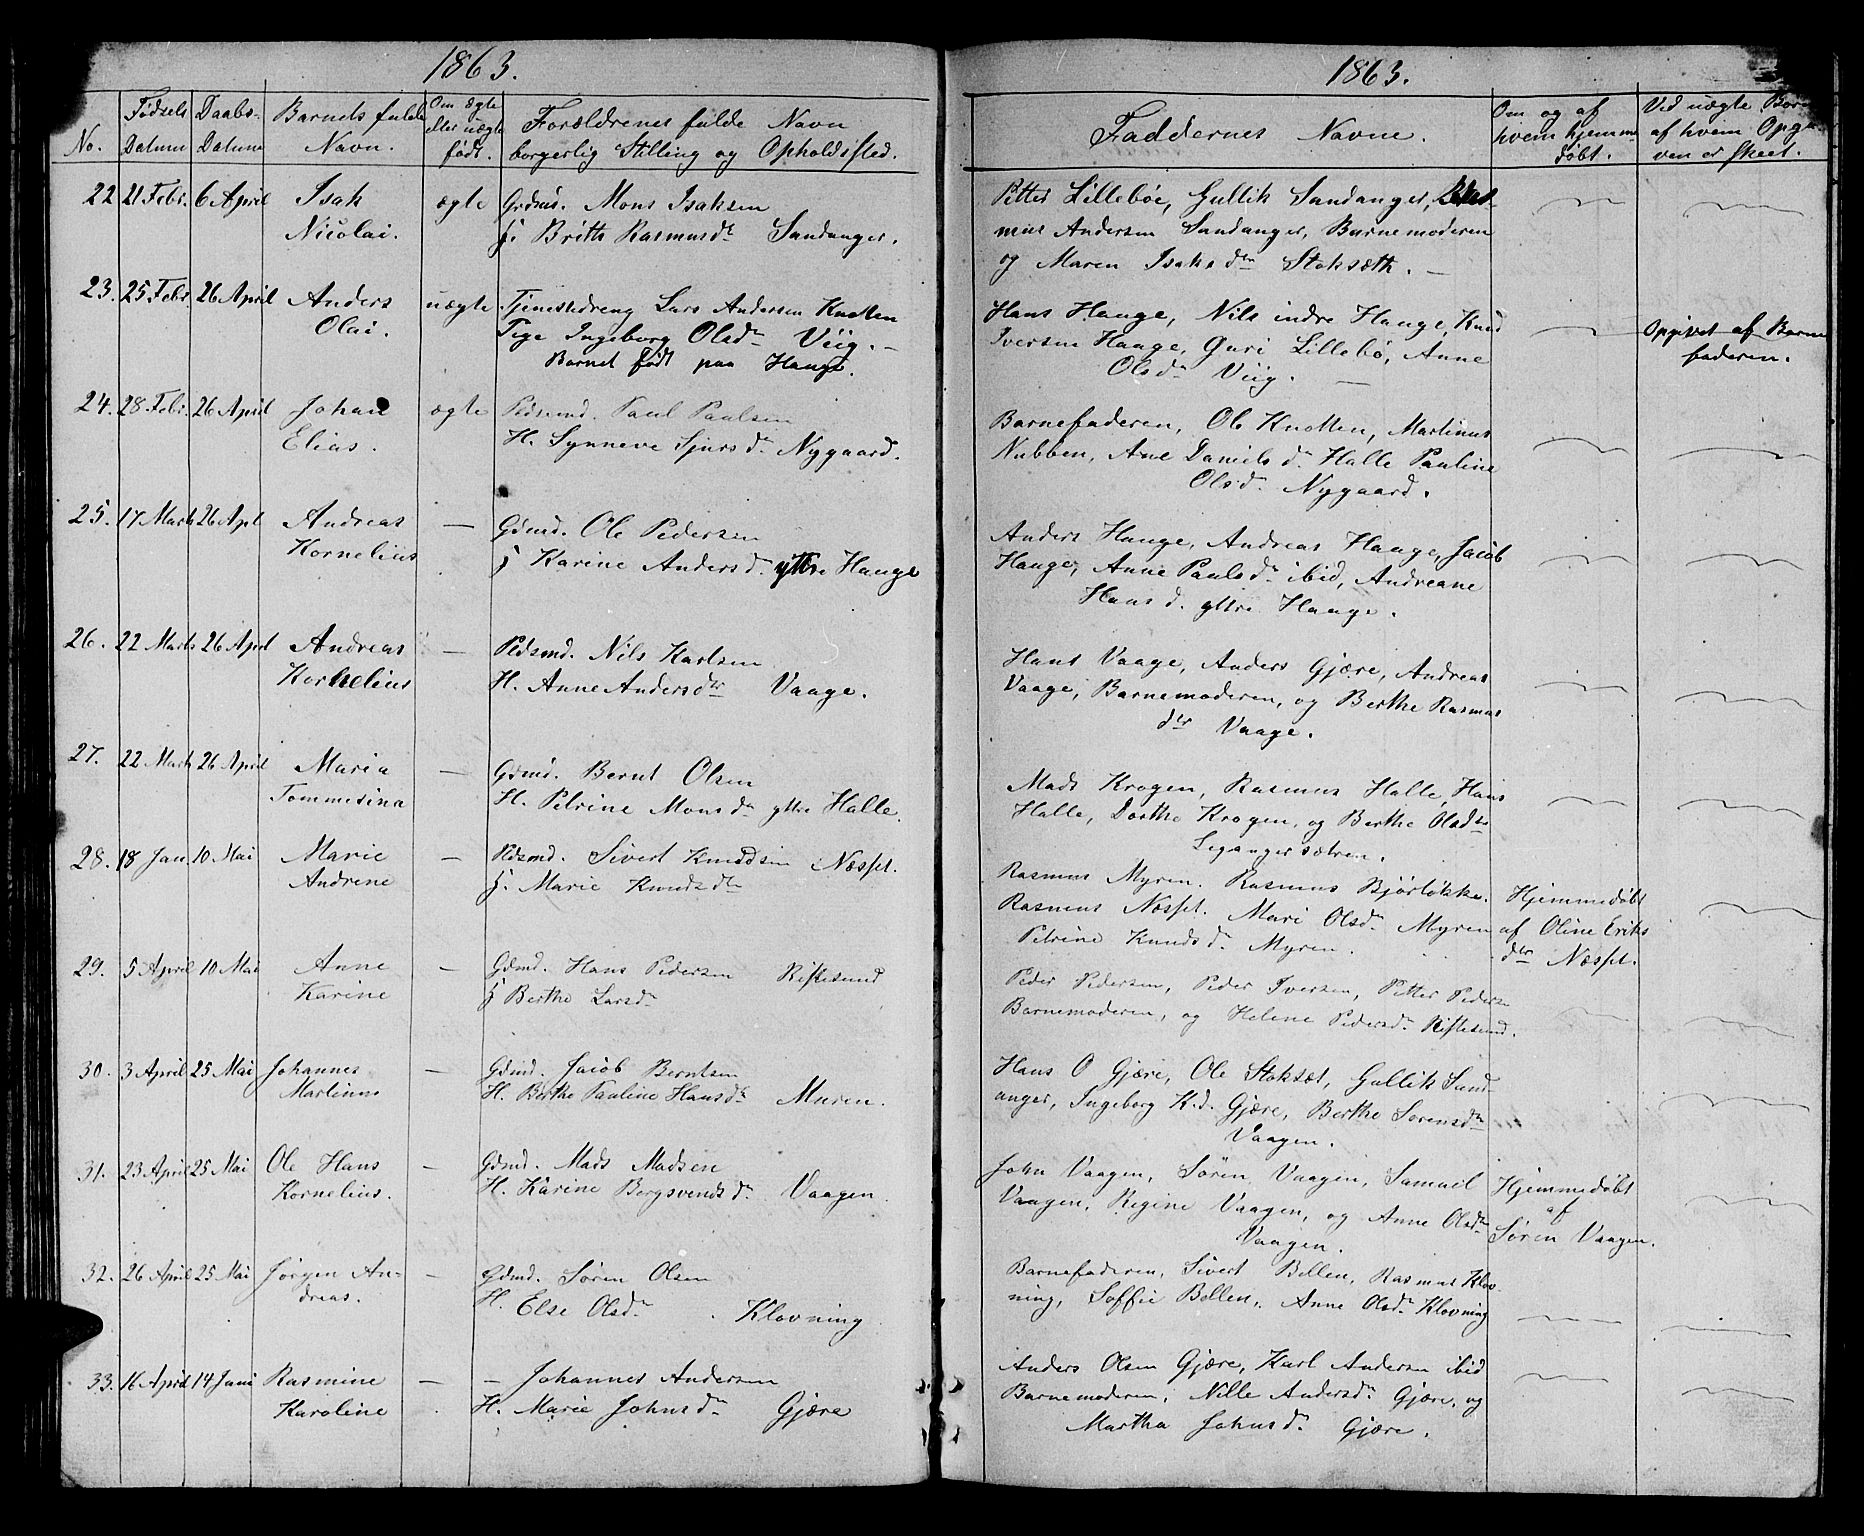 1863.
No.
Fødsels Datum
Daabs- Datum
Barnets fulde Navn.
Om ægte eller uægte født.
Forældrenes fulde Navn
borgerlig Stilling og Opholdssted.
22. 21 Febr. 6 April Isak ægte Grdmd. Mons Isaksen
Nicolai. H. Brithe Rasmusdr Sandanger.
23. 25 Febr. 26 April Anders uægte Tjenestedreng Lars Andersen Knotten
Olai. Pige Ingeborg Olsdr Viig. –
Barnet født paa Hauge.
24. 28 Febr. 26 April Johan ægte Pldsmd. Paul Paulsen
Elias. H. Synneve Sjursdr. Nygaard.
25. 17 Marts 26 Apl Andreas — Gdmd. Ole Pedersen
Kornelius H. Karine Andersd. yttre Hauge
26. 22 Marts 26 Aprl Andreas — Pldsmd. Nils Karlsen
Kornelius H. Anne Andersdtr Vaage.
27. 22 Marts 26 April Maria — Gdmd. Bernt Olsen
Tommesina H. Petrine Monsdr yttre Halle.
28. 18 Jan 10 Mai Marie — Pldsmd. Sivert Knudsen Næsset.
Andrene H. Marie Knudsdtr
29. 5 April 10 Mai Anne — Gdmd. Hans Pedersen Riftesund
Karine H. Berthe Larsdr
30. 3 April 25 Mai Johannes — Gdmd. Jacob Berntsen
Martinus H. Berthe Pauline Hansdr Muren.
31. 23 April 25 Mai Ole Hans — Gdmd. Mads Madsen
Kornelius. H. Karine Bergsvendsdr. Vaagen.
32. 26 April 25 Mai Jørgen An- — Gdmd. Søren Olsen
dreas. H. Else Olsdr Klovning
33. 16 April 14 Juni Rasmine — – Johannes Andersen
Karoline H. Marie Johnsdr Gjære
1863.
Faddernes Navne.
Om og af hvem hjemme døbt.
Ved uægte Børn af hvem Opgaven er skeet.
Petter Lillebøe, Gullik Sandanger, Ras-
mus Andersen Sandanger, Barnemoderen
og Maren Isaksdtr Stoksæth. –
Hans Hauge, Nils indre Hauge, Knud
Iversen Hauge, Guri Lillebø, Anne
Olsdr Viig. —
Opgivet af Barne
faderen.
Barnefaderen, Ole Knotten, Martinus
Nubben, Ane Danielsdr. Halle Pauline
Olsd. Nygaard.
Anders Hauge, Andreas Hauge, Jacob
Hauge, Anne Paulsdr ibid, Andreane
Hansd. yttre Hauge.
Hans Vaage, Anders Gjære, Andreas
Vaage, Barnemoderen, og Berthe Rasmus
dtr Vaage.
Mads Krogen, Rasmus Halle, Hans
Halle, Dorthe Krogen, og Berthe Olsdtr
Legangersætren.
Rasmus Myren. Rasmus Bjørløkke. Hjemmedøbt
Rasmus Næsset. Mari Olsdr Myren af Oline Eriks
Petrine Knudsdr Myren. dtr Næsset.
Peder Pedersen, Peder Iversen, Petter Peders
Barnemoderen, og Helene Pedersdr Riftesund.
Hans O Gjære, Ole Stoksæt, Gullik Sand-
anger, Ingeborg K.d. Gjære, Berthe Sørensdtr
Vaagen.
John Vaagen, Søren Vaagen, Samuel Hjemmedøbt
Vaagen, Regine Vaagen, og Anne Olsdtr af
Vaagen. Søren Vaagen.
Barnefaderen, Sivert Bellen, Rasmus Klov-
ning, Soffie Bellen, Anne Olsdr Klovning
Anders Olsen Gjære, Karl Andersen ibid
Barnemoderen, Nille Andersdr Gjære, og
Martha Johnsdr Gjære.